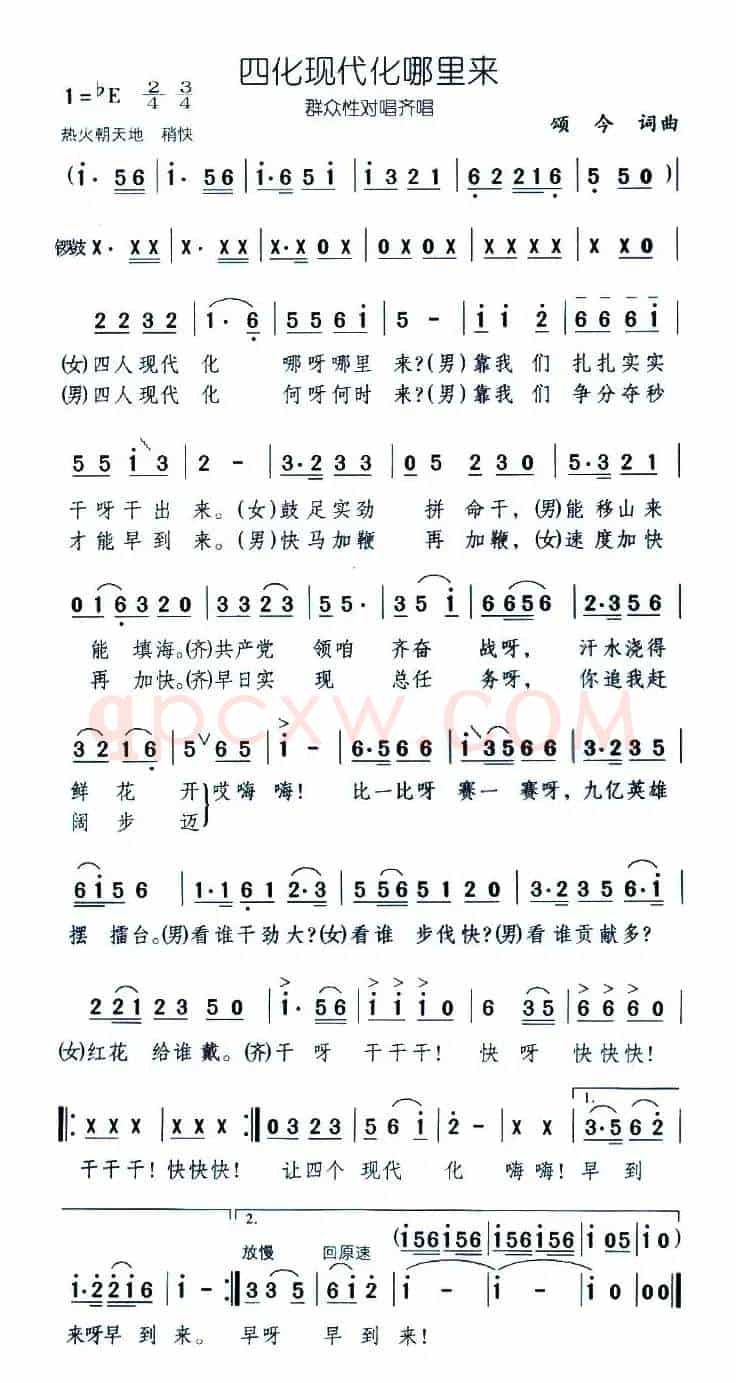 四化现代化哪里来
1=♭E 2/4 3/4
群众性对唱齐唱
颂今 词曲
热火朝天地 稍快
(i· 56 | i· 56 | i·651 | i321 | 62216 | 5 50 )|
锣鼓 X· XX | X· XX | X·X0X | 0X0X | XXXX | XX0 |
2232 | 1· 6 | 556i | 5 - | ii 2 | 666i |
(女)四人现代化 哪呀哪里来?(男)靠我们扎扎实实
(男)四人现代化 何呀何时来?(男)靠我们争分夺秒
55i3 | 2 - | 3·233 | 05 230 | 5·321 |
干呀干出来。(女)鼓足实劲 拼命干，(男)能移山来
才能早到来。(男)快马加鞭 再加鞭，(女)速度加快
016320 | 3323 | 55· | 35 i | 6656 | 2·356 |
能填海。(齐)共产党 领咱 齐奋 战呀， 汗水浇得
再加快。(齐)早日实 现 总任 务呀， 你追我赶
qpcxw.COM
3216 | 5∨65 | i - | 6·566 | i3566 | 3·235 |
鲜花开 哎嗨嗨！ 比一比呀 赛一赛呀，九亿英雄
阔步迈
6i56 | 1·161 2·3 | 5565120 | 3·235 6·i |
摆擂台。(男)看谁干劲大?(女)看谁 步伐快?(男)看谁贡献多?
2212350 | i· 56 | iii0 | 6 35 | 6660 |
(女)红花 给谁戴。(齐)干 呀 干干干！ 快呀 快快快！
1.
‖: XXX | XXX :‖ 0323 | 56 i | 2 - | XX | 3·562 |
干干干！快快快！ 让四个 现代 化 嗨嗨！早到
2.
放慢 回原速 (i56i56 | i56i56 | i56i56i56i56 | i05 | i0)
i·22i6 | i - :‖ 33 5 | 6i2 | i - | i - | i0 | 00 ‖
来呀早到来。 早呀 早到来！